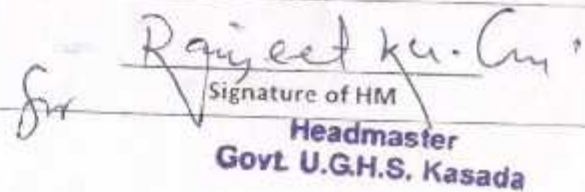 Ranjeet Ku.
for
Signature of HM
Headmaster
Govt. U.G.H.S. Kasada